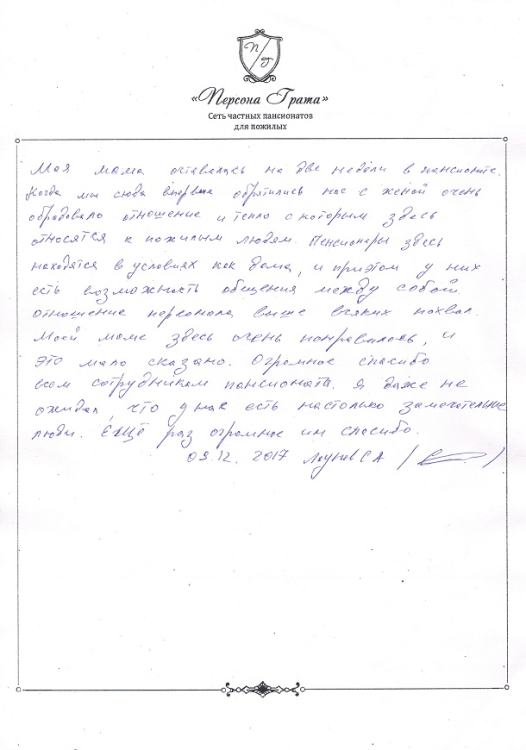 П Г
«Персона Грата»
Сеть частных пансионатов
для пожилых
Моя мама оставалась на две недели в пансионате.
Когда мы сюда впервые обратились нас с женой очень
обрадовало отношение и тепло с которым здесь
относятся к пожилым людям. Пенсионеры здесь
находятся в условиях как дома, и приэтом у них
есть возможность общения между собой.
отношение персонала выше всяких похвал.
Моей маме здесь очень понравилось, и
это мало сказано. Огромное спасибо
всем сотрудникам пансионата. Я даже не
ожидал, что у нас есть настолько замечательные
люди. ЕЩЁ раз огромное им спасибо.
09.12. 2017